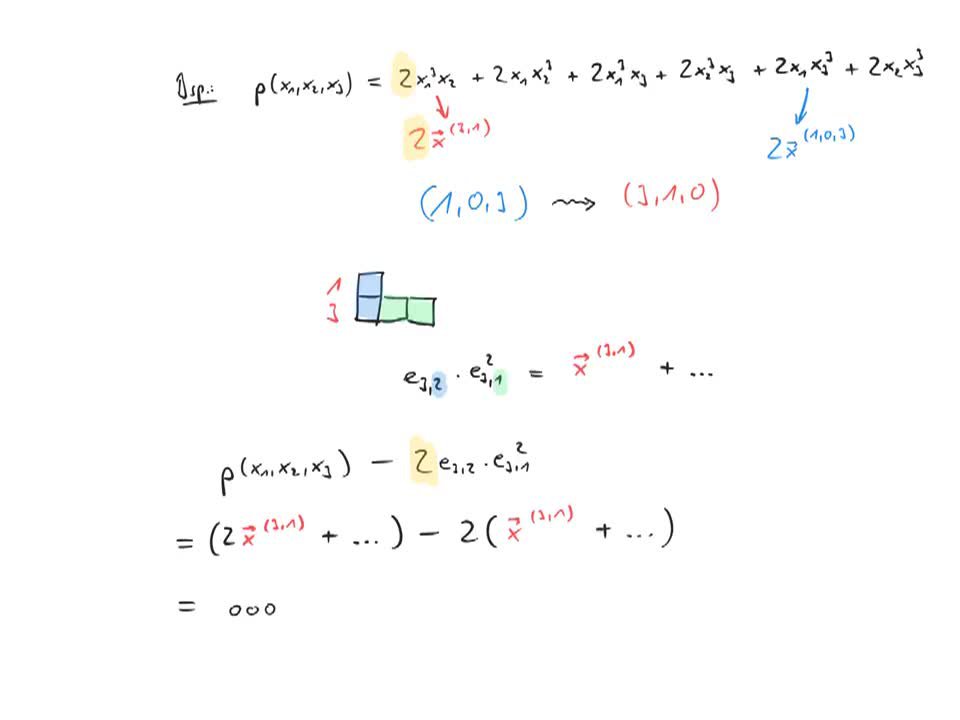 Bsp.: p(x₁,x₂,x₃) = 2x₁³x₂ + 2x₁x₂³ + 2x₁³x₃ + 2x₂³x₃ + 2x₁x₃³ + 2x₂x₃³
2x⃗^(3,1) 2x⃗^(1,0,3)
(1,0,3) ⇝ (3,1,0)
1
3
e₃,₂ · e₃,₁² = x⃗^(3,1) + ...
p(x₁,x₂,x₃) − 2e₃,₂ · e₃,₁²
= (2x⃗^(3,1) + ...) − 2(x⃗^(3,1) + ...)
= ooo